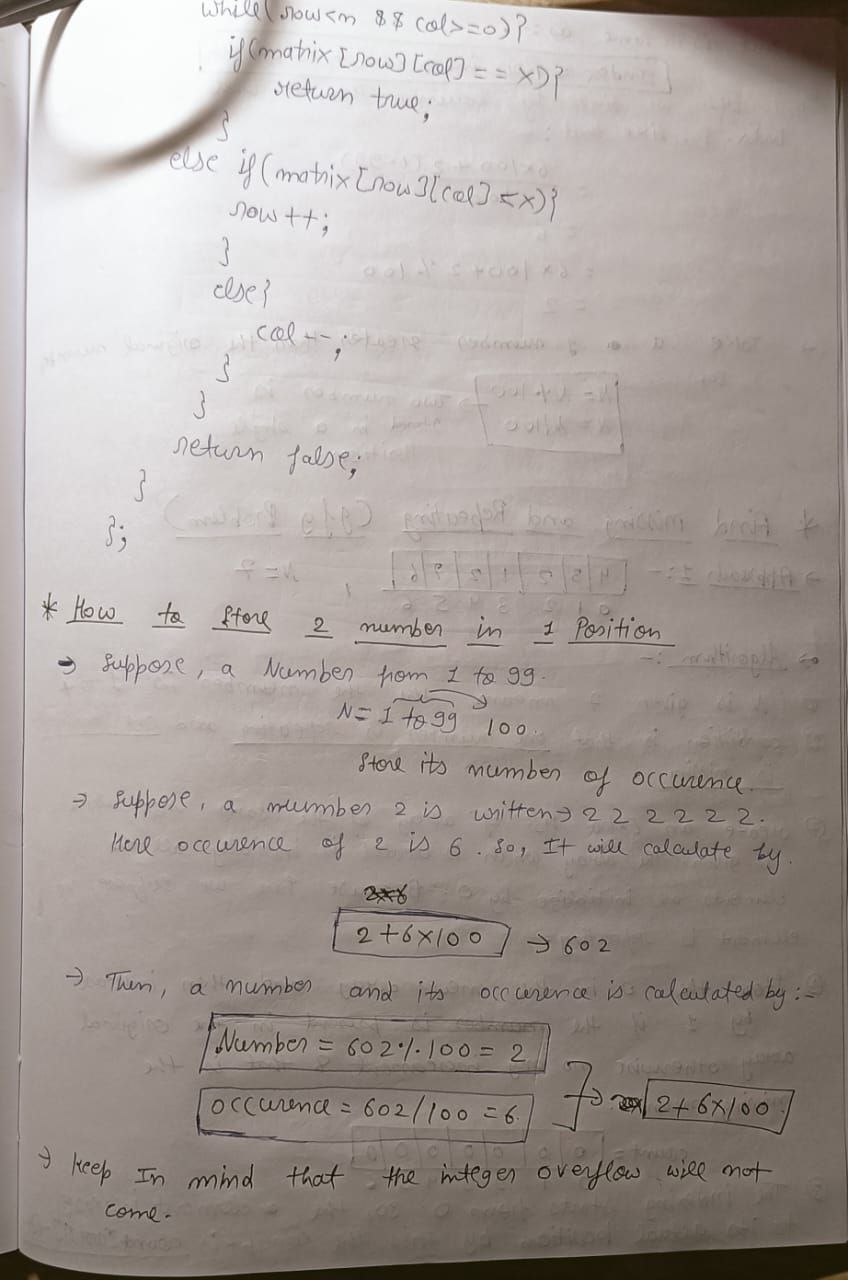 while(row<n && col>=0){
if(matrix[row][col]==x){
return true;
}
else if(matrix[row][col]<x){
row++;
}
else{
col--;
}
}
return false;
}
};
* How to Store 2 number in 1 Position
→ Suppose, a Number from 1 to 99.
N = 1 to 99 100.
Store its number of occurence.
→ Suppose, a number 2 is written → 2 2 2 2 2 2.
Here occurence of 2 is 6. So, It will calculate by.
2+6×100 → 602
→ Then, a number and its occurence is calculated by:-
Number = 602%100 = 2
occurence = 602/100 = 6. → 2+6×100
→ Keep In mind that the integer overflow will not
come.